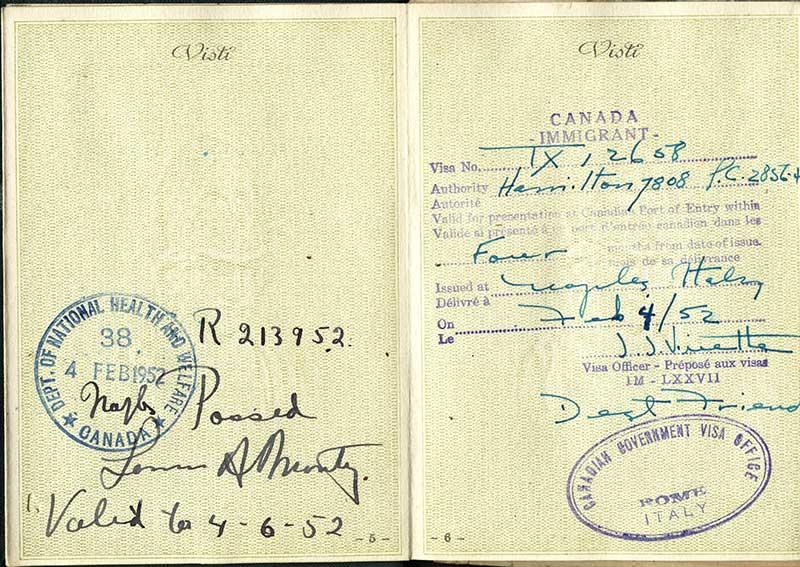 Visti
DEPT. OF NATIONAL HEALTH AND WELFARE
38
4 FEB 1952
Naples
★ CANADA ★
R 213952.
Passed
Valid to 4-6-52
- 5 -
Visti
CANADA
- IMMIGRANT -
Visa No. IX 12658
Authority Hamilton 7808 P.C. 2856-
Autorité
Valid for presentation at Canadian Port of Entry within
Valide si présenté à port d'entrée canadien dans les
Four months from date of issue.
mois de sa délivrance
Issued at Naples Italy
Délivré à
On Feb 4/52
Le
Visa Officer - Préposé aux visas
IM - LXXVII
Dest Friend
CANADIAN GOVERNMENT VISA OFFICE
ROME
ITALY
- 6 -